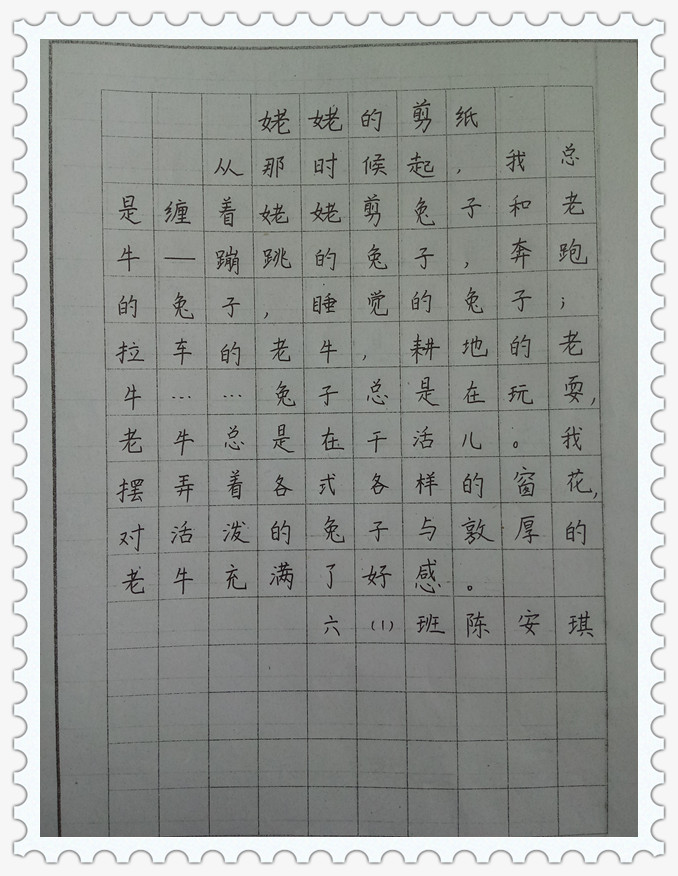 姥姥的剪纸
从那时候起,我总
是缠着姥姥剪兔子和老
牛——蹦跳的兔子,奔跑
的兔子,睡觉的兔子;
拉车的老牛,耕地的老
牛……兔子总是在玩耍,
老牛总是在干活儿。我
摆弄着各式各样的窗花,
对活泼的兔子与敦厚的
老牛充满了好感。
六(1)班陈安琪